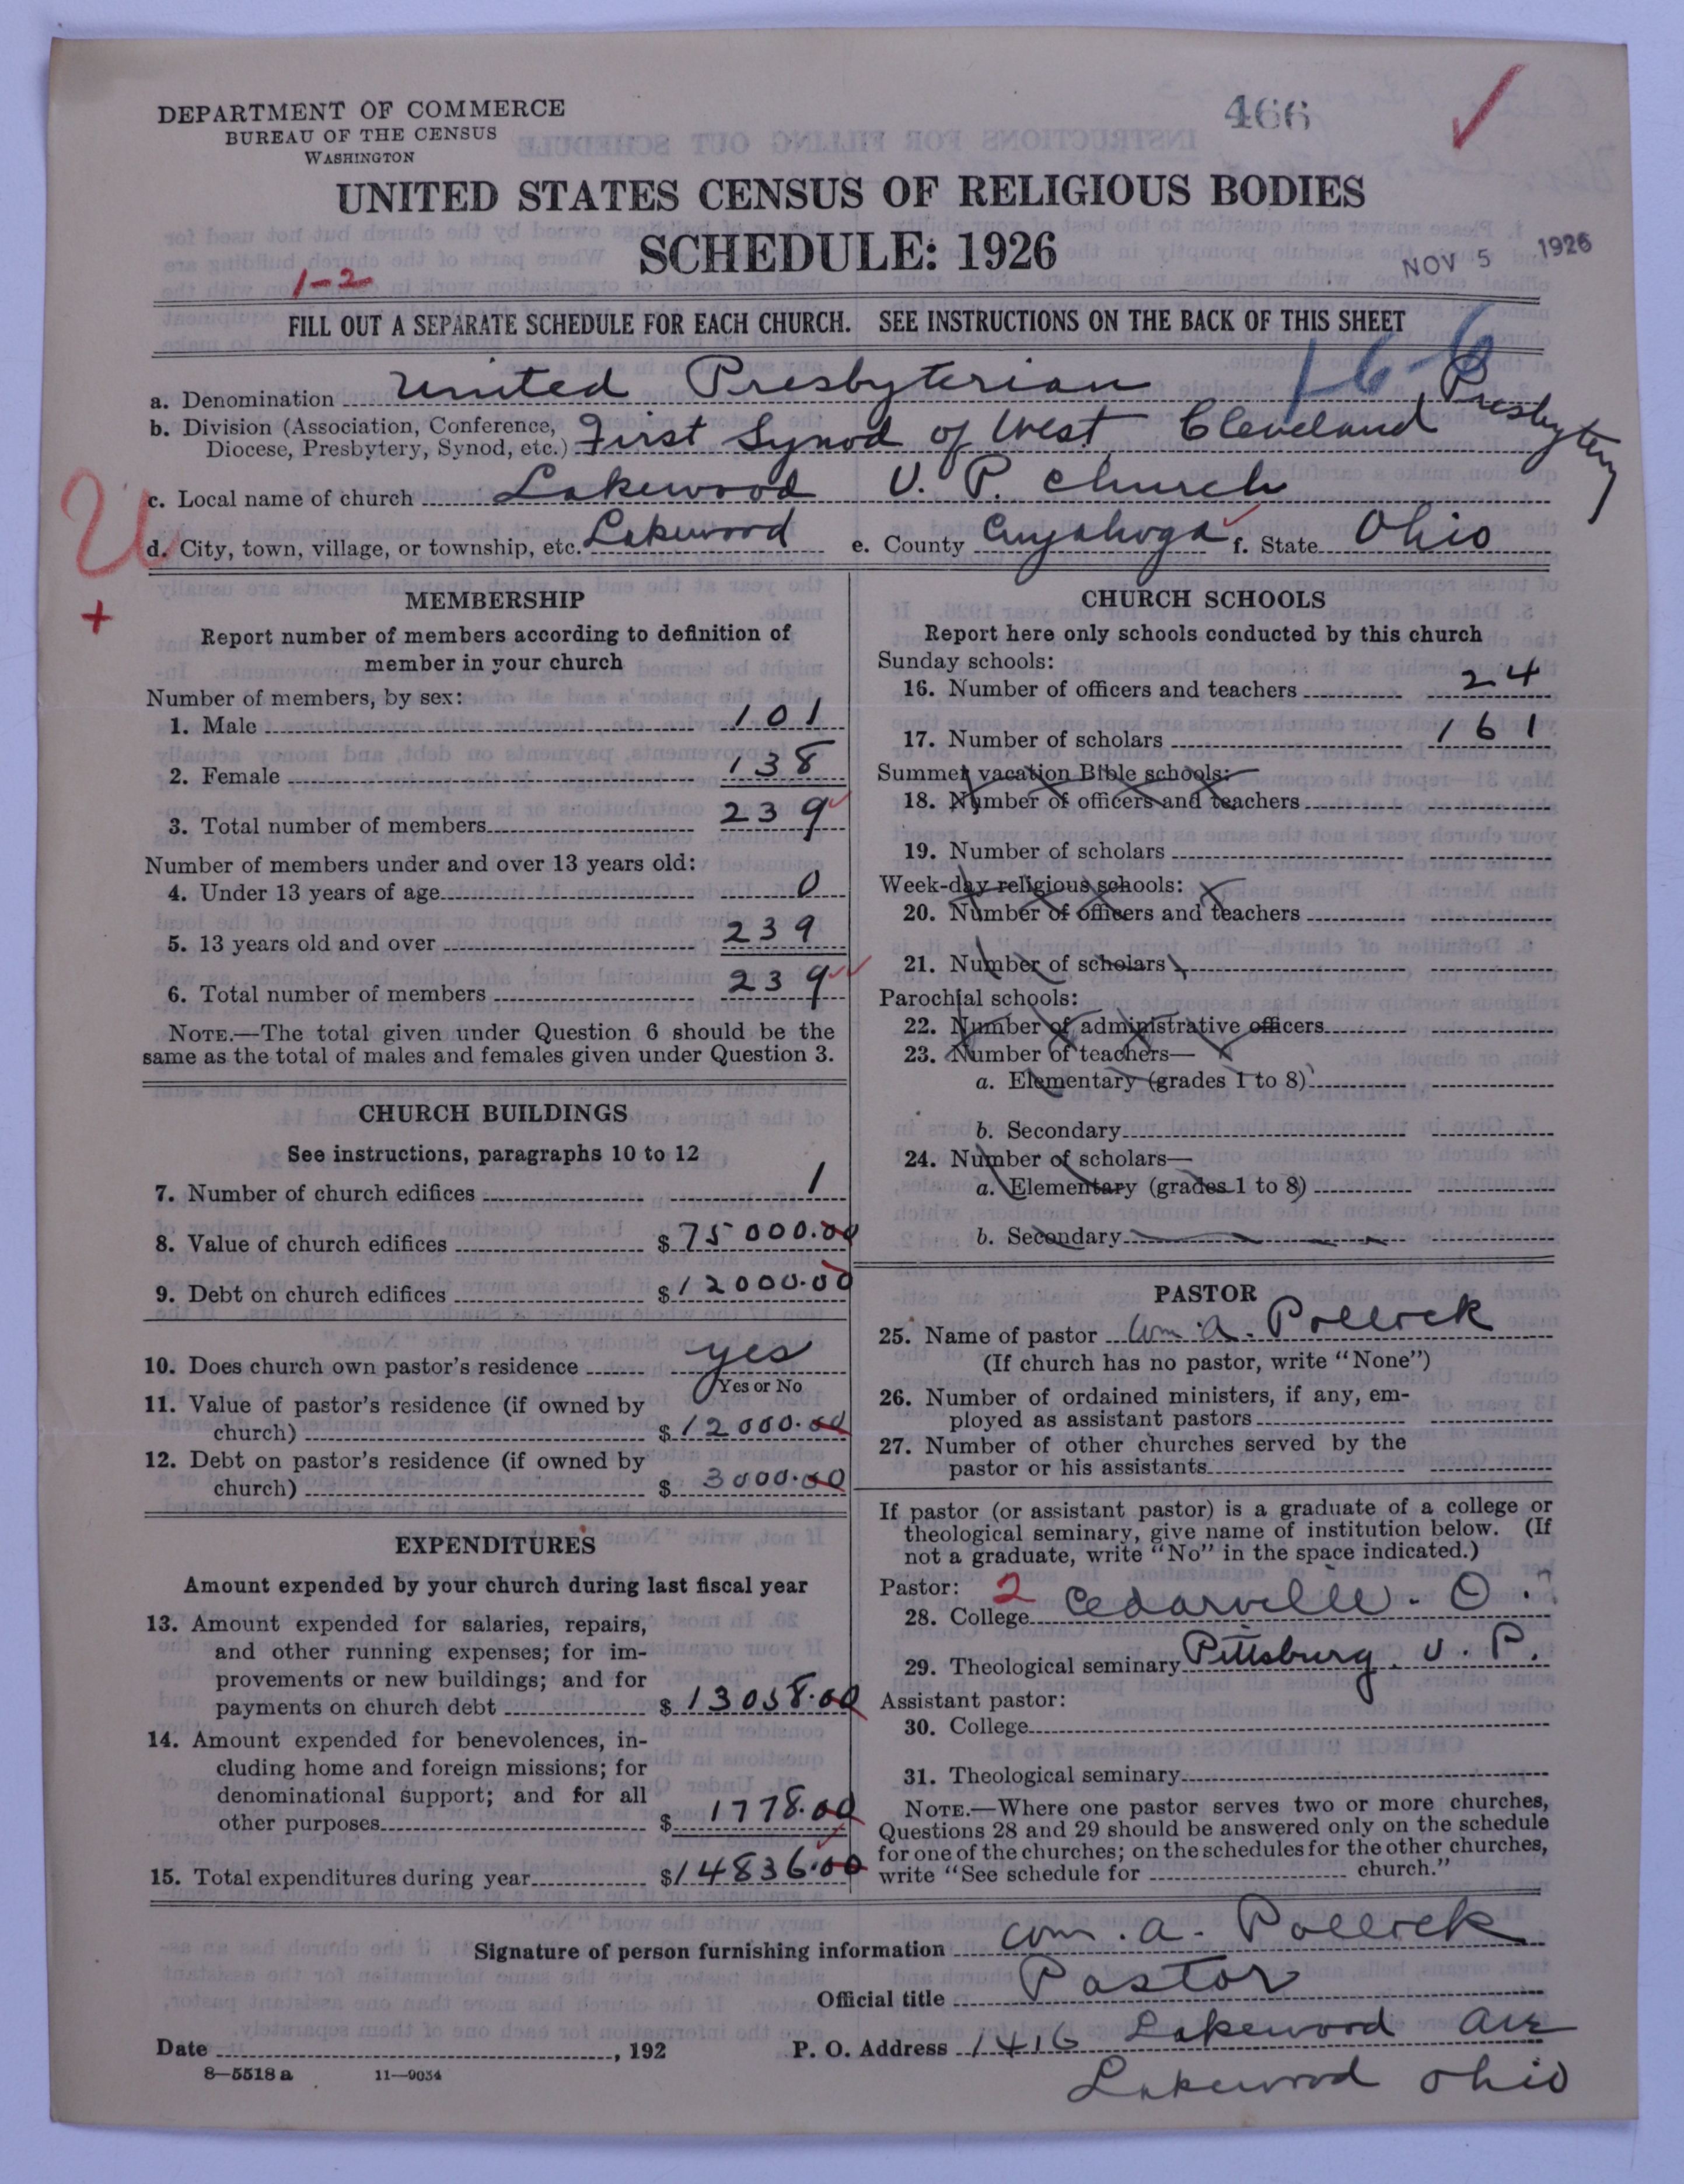 DEPARTMENT OF COMMERCE
BUREAU OF THE CENSUS
WASHINGTON
466
UNITED STATES CENSUS OF RELIGIOUS BODIES
SCHEDULE: 1926
NOV 5 1926
1-2
FILL OUT A SEPARATE SCHEDULE FOR EACH CHURCH. SEE INSTRUCTIONS ON THE BACK OF THIS SHEET
16-6
a. Denomination United Presbyterian
b. Division (Association, Conference, Diocese, Presbytery, Synod, etc.) First Synod of West Cleveland Presbytery
c. Local name of church Lakewood U. P. Church
d. City, town, village, or township, etc. Lakewood e. County Cuyahoga f. State Ohio
MEMBERSHIP
Report number of members according to definition of
member in your church
Number of members, by sex:
1. Male 101
2. Female 138
3. Total number of members 239
Number of members under and over 13 years old:
4. Under 13 years of age 0
5. 13 years old and over 239
6. Total number of members 239
NOTE.—The total given under Question 6 should be the
same as the total of males and females given under Question 3.
CHURCH BUILDINGS
See instructions, paragraphs 10 to 12
7. Number of church edifices 1
8. Value of church edifices $75000.00
9. Debt on church edifices $12000.00
10. Does church own pastor's residence yes
Yes or No
11. Value of pastor's residence (if owned by
church) $12000.00
12. Debt on pastor's residence (if owned by
church) $3000.00
EXPENDITURES
Amount expended by your church during last fiscal year
13. Amount expended for salaries, repairs,
and other running expenses; for im-
provements or new buildings; and for
payments on church debt $13058.00
14. Amount expended for benevolences, in-
cluding home and foreign missions; for
denominational support; and for all
other purposes $1778.00
15. Total expenditures during year $14836.00
CHURCH SCHOOLS
Report here only schools conducted by this church
Sunday schools:
16. Number of officers and teachers 24
17. Number of scholars 161
Summer vacation Bible schools:
18. Number of officers and teachers
19. Number of scholars
Week-day religious schools:
20. Number of officers and teachers
21. Number of scholars
Parochial schools:
22. Number of administrative officers
23. Number of teachers—
a. Elementary (grades 1 to 8)
b. Secondary
24. Number of scholars—
a. Elementary (grades 1 to 8)
b. Secondary
PASTOR
25. Name of pastor Wm. A. Pollock
(If church has no pastor, write "None")
26. Number of ordained ministers, if any, em-
ployed as assistant pastors
27. Number of other churches served by the
pastor or his assistants
If pastor (or assistant pastor) is a graduate of a college or
theological seminary, give name of institution below. (If
not a graduate, write "No" in the space indicated.)
Pastor: 2
28. College Cedarville - O.
29. Theological seminary Pittsburg. U. P.
Assistant pastor:
30. College
31. Theological seminary
NOTE.—Where one pastor serves two or more churches,
Questions 28 and 29 should be answered only on the schedule
for one of the churches; on the schedules for the other churches,
write "See schedule for church."
Signature of person furnishing information Wm. A. Pollock
Official title Pastor
Date , 192 P. O. Address 1416 Lakewood Ave
Lakewood Ohio
8—5518 a 11—9034